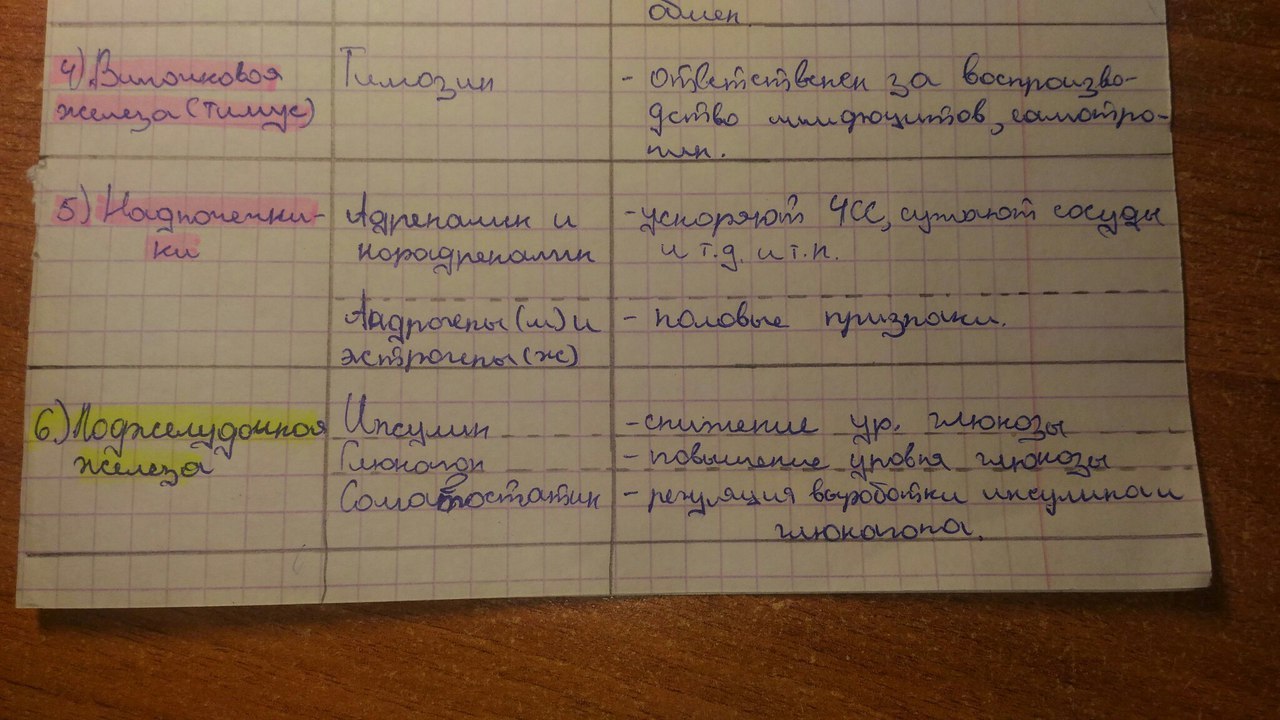 обмен.
4) Вилочковая
железа (тимус)
Тимозин
- ответственен за воспроизво-
дство лимфоцитов, саматро-
пин.
5) Надпочечни-
ки
Адреналин и
норадреналин
- ускоряют ЧСС, сужают сосуды
и т.д. и т.п.
Андрогены (м) и
эстрогены (ж)
- половые признаки.
6) Поджелудочная
железа
Инсулин
- снижение ур. глюкозы
Глюкагон
- повышение уровня глюкозы
Соматостатин
- регуляция выработки инсулина и
глюкагона.